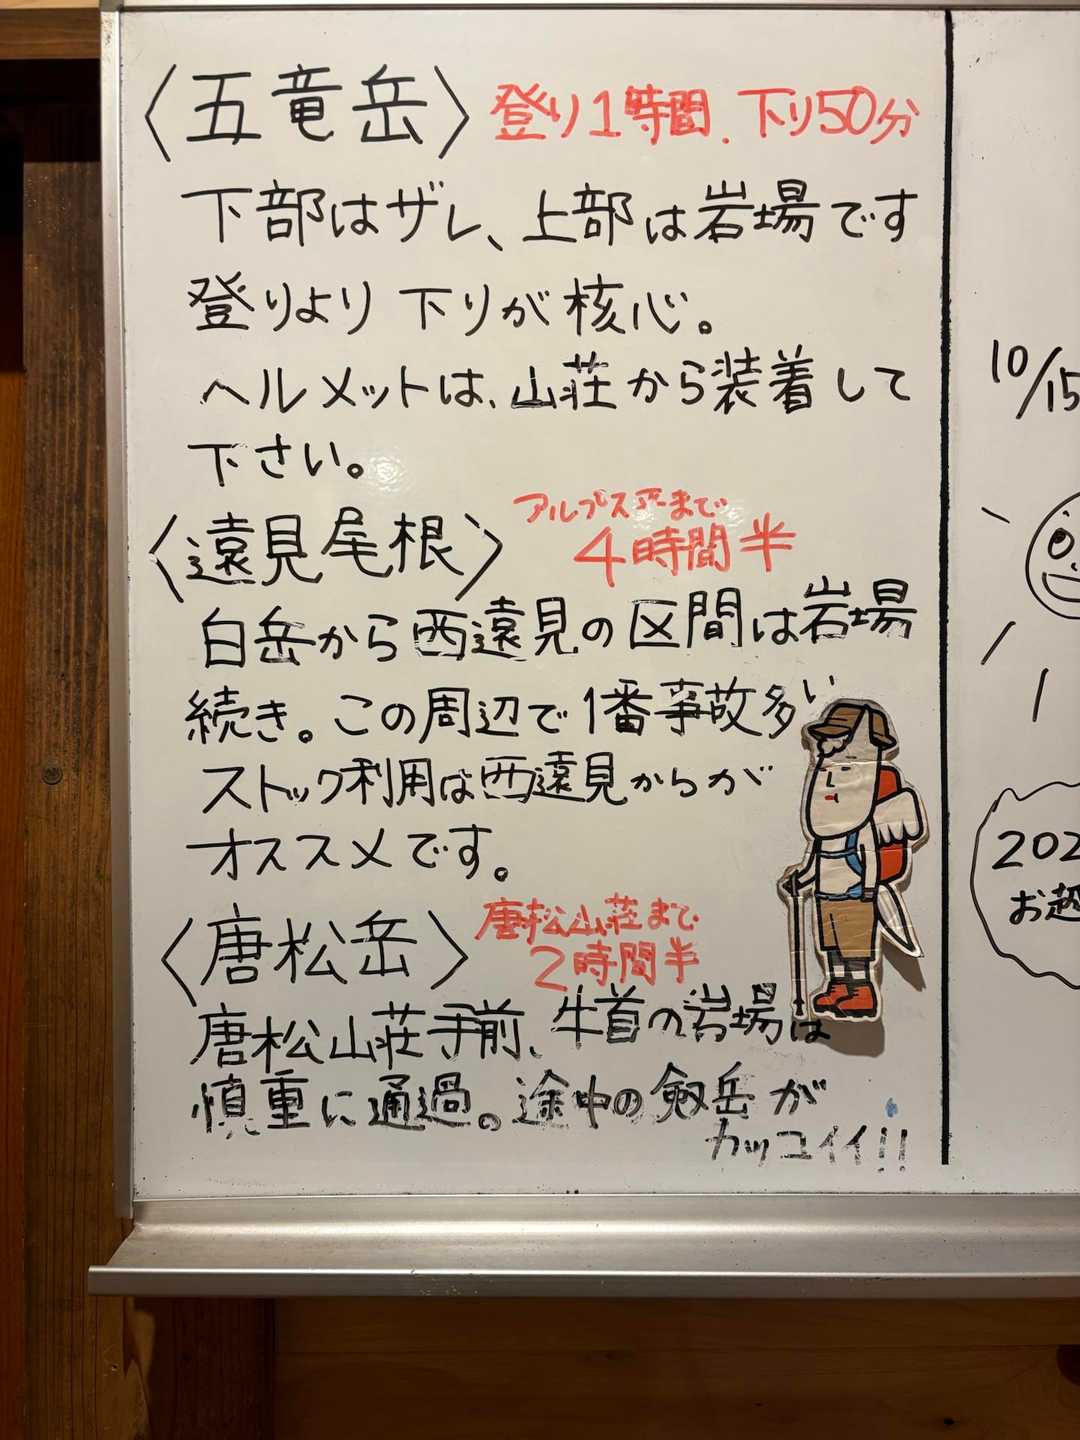 〈五竜岳〉 登り1時間. 下り50分
下部はザレ、上部は岩場です
登りより 下りが核心。
ヘルメットは、山荘から装着して
下さい。
〈遠見尾根〉 アルプス平まで
4時間半
白岳から西遠見の区間は岩場
続き。この周辺で1番事故多い
ストック利用は西遠見からが
オススメです。
〈唐松岳〉 唐松山荘まで
2時間半
唐松山荘手前、牛首の岩場は
慎重に通過。途中の剱岳が
カッコイイ!!
10/15
202
お越